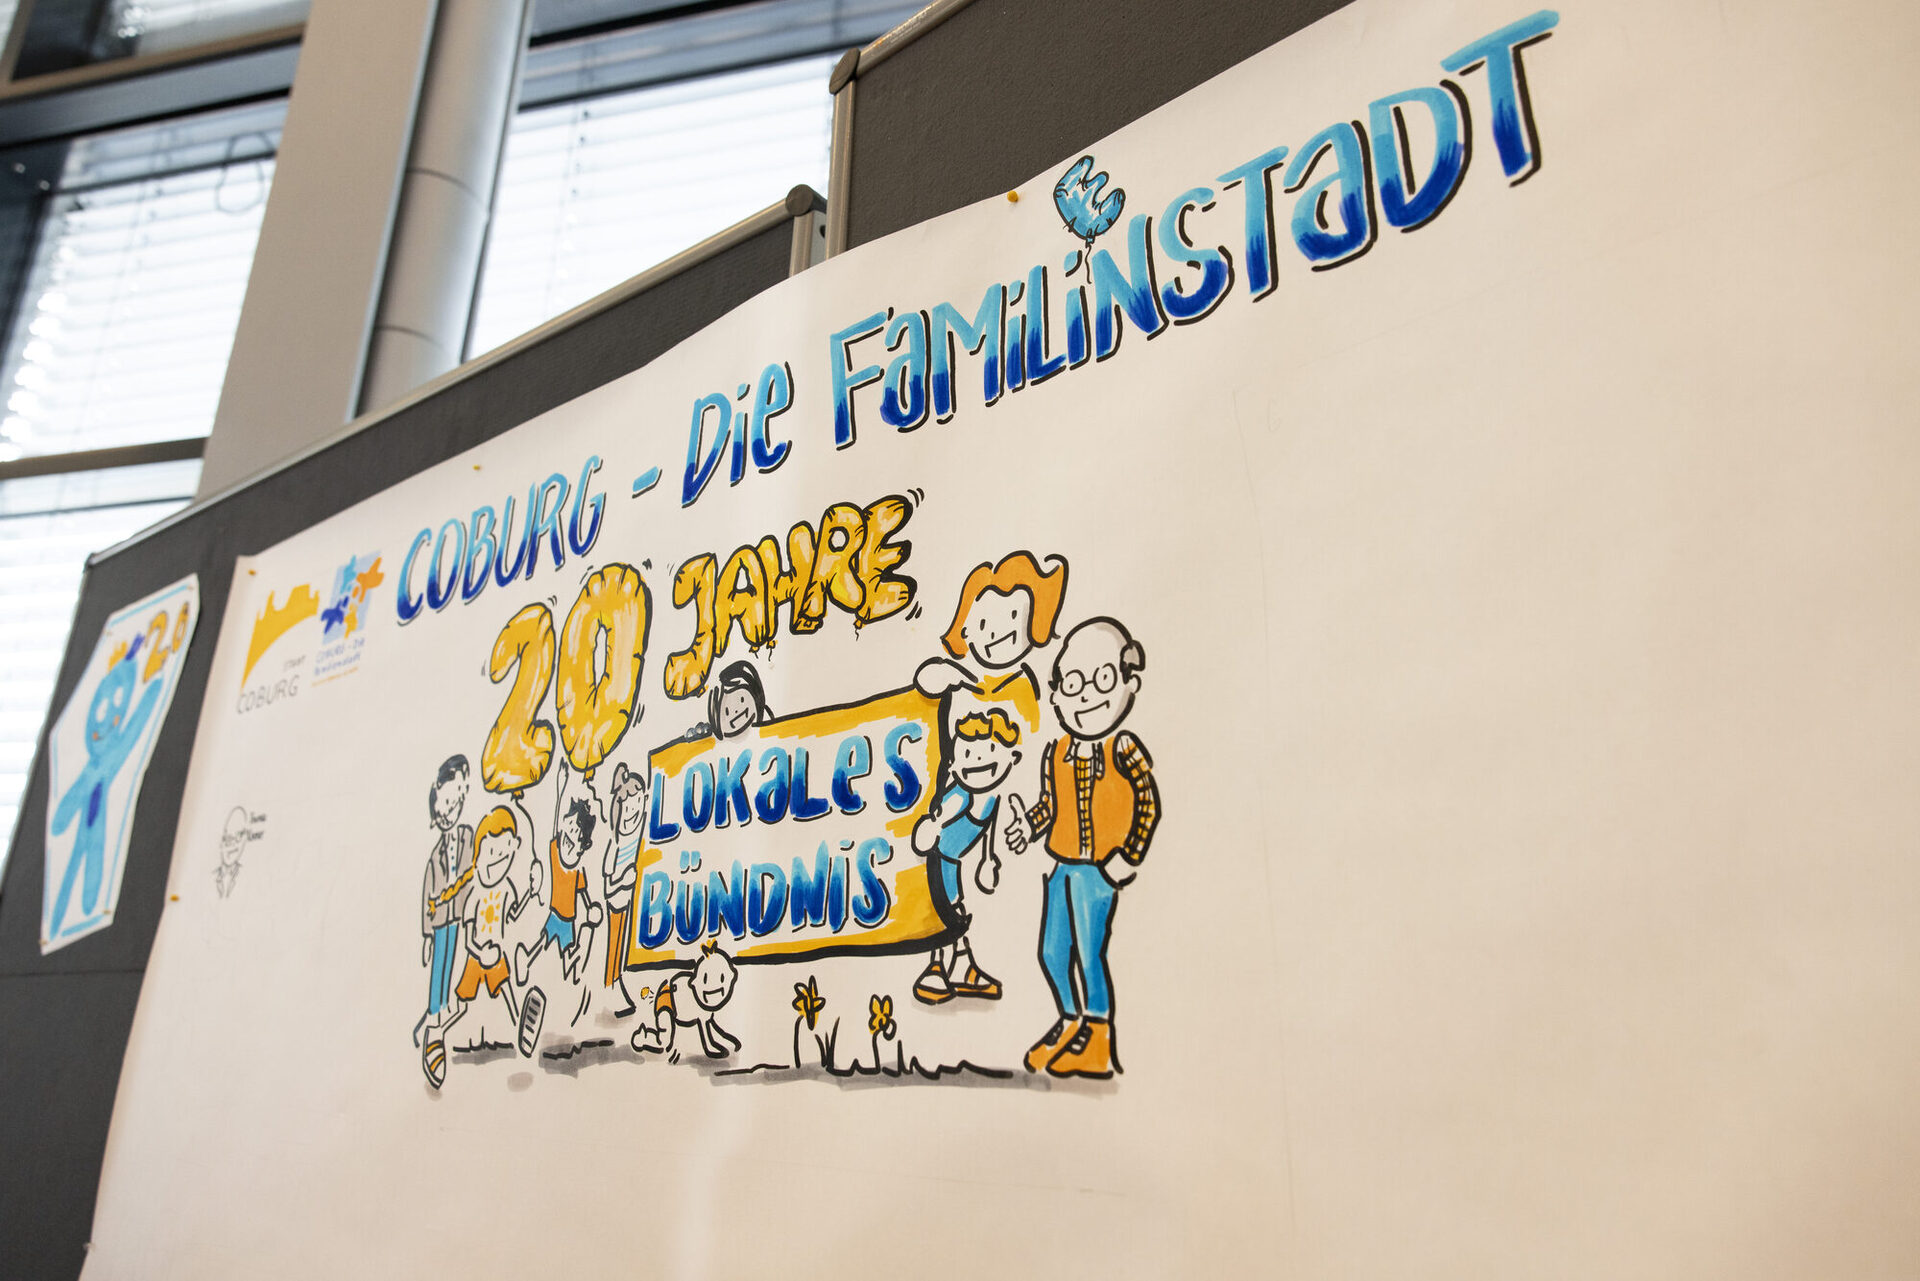 COBURG - Die FamilinSTaDT
20 JAHRE
LOKaLeS
BÜNDNiS
STADT
COBURG
COBURG - Die
Familienstadt
2.0